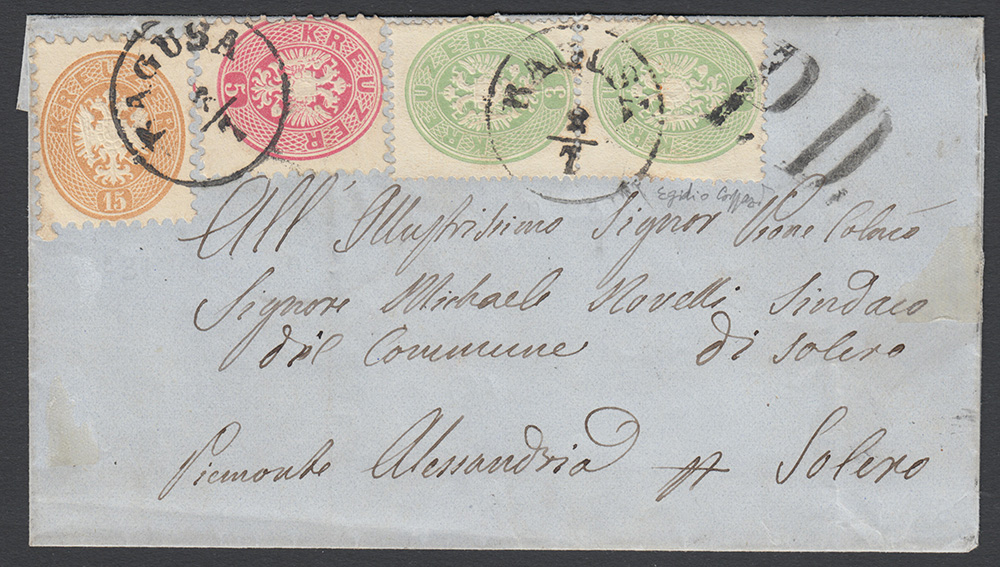 RAGUSA
8/7
KREUZER
15
KREUZER
5
KREUZER
3
KREUZER
RAGUSA
8/7
PD
Egidio
All' Illustrissimo Signor
Signore Michaele Novelli Sindaco
del Commune di Solero
Piemonte Alessandria Solero